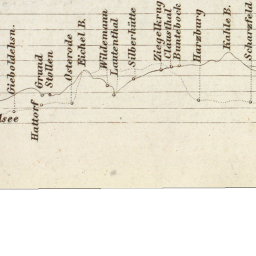 Gieboldehsn.
Grund
Stollen
Osterode
Eichel B.
Wildemann
Lautenthal
Silberhütte
Ziegelkrug
Clausthal
Buntebock
Harzburg
Kahle B.
Scharzfeld
Hattorf